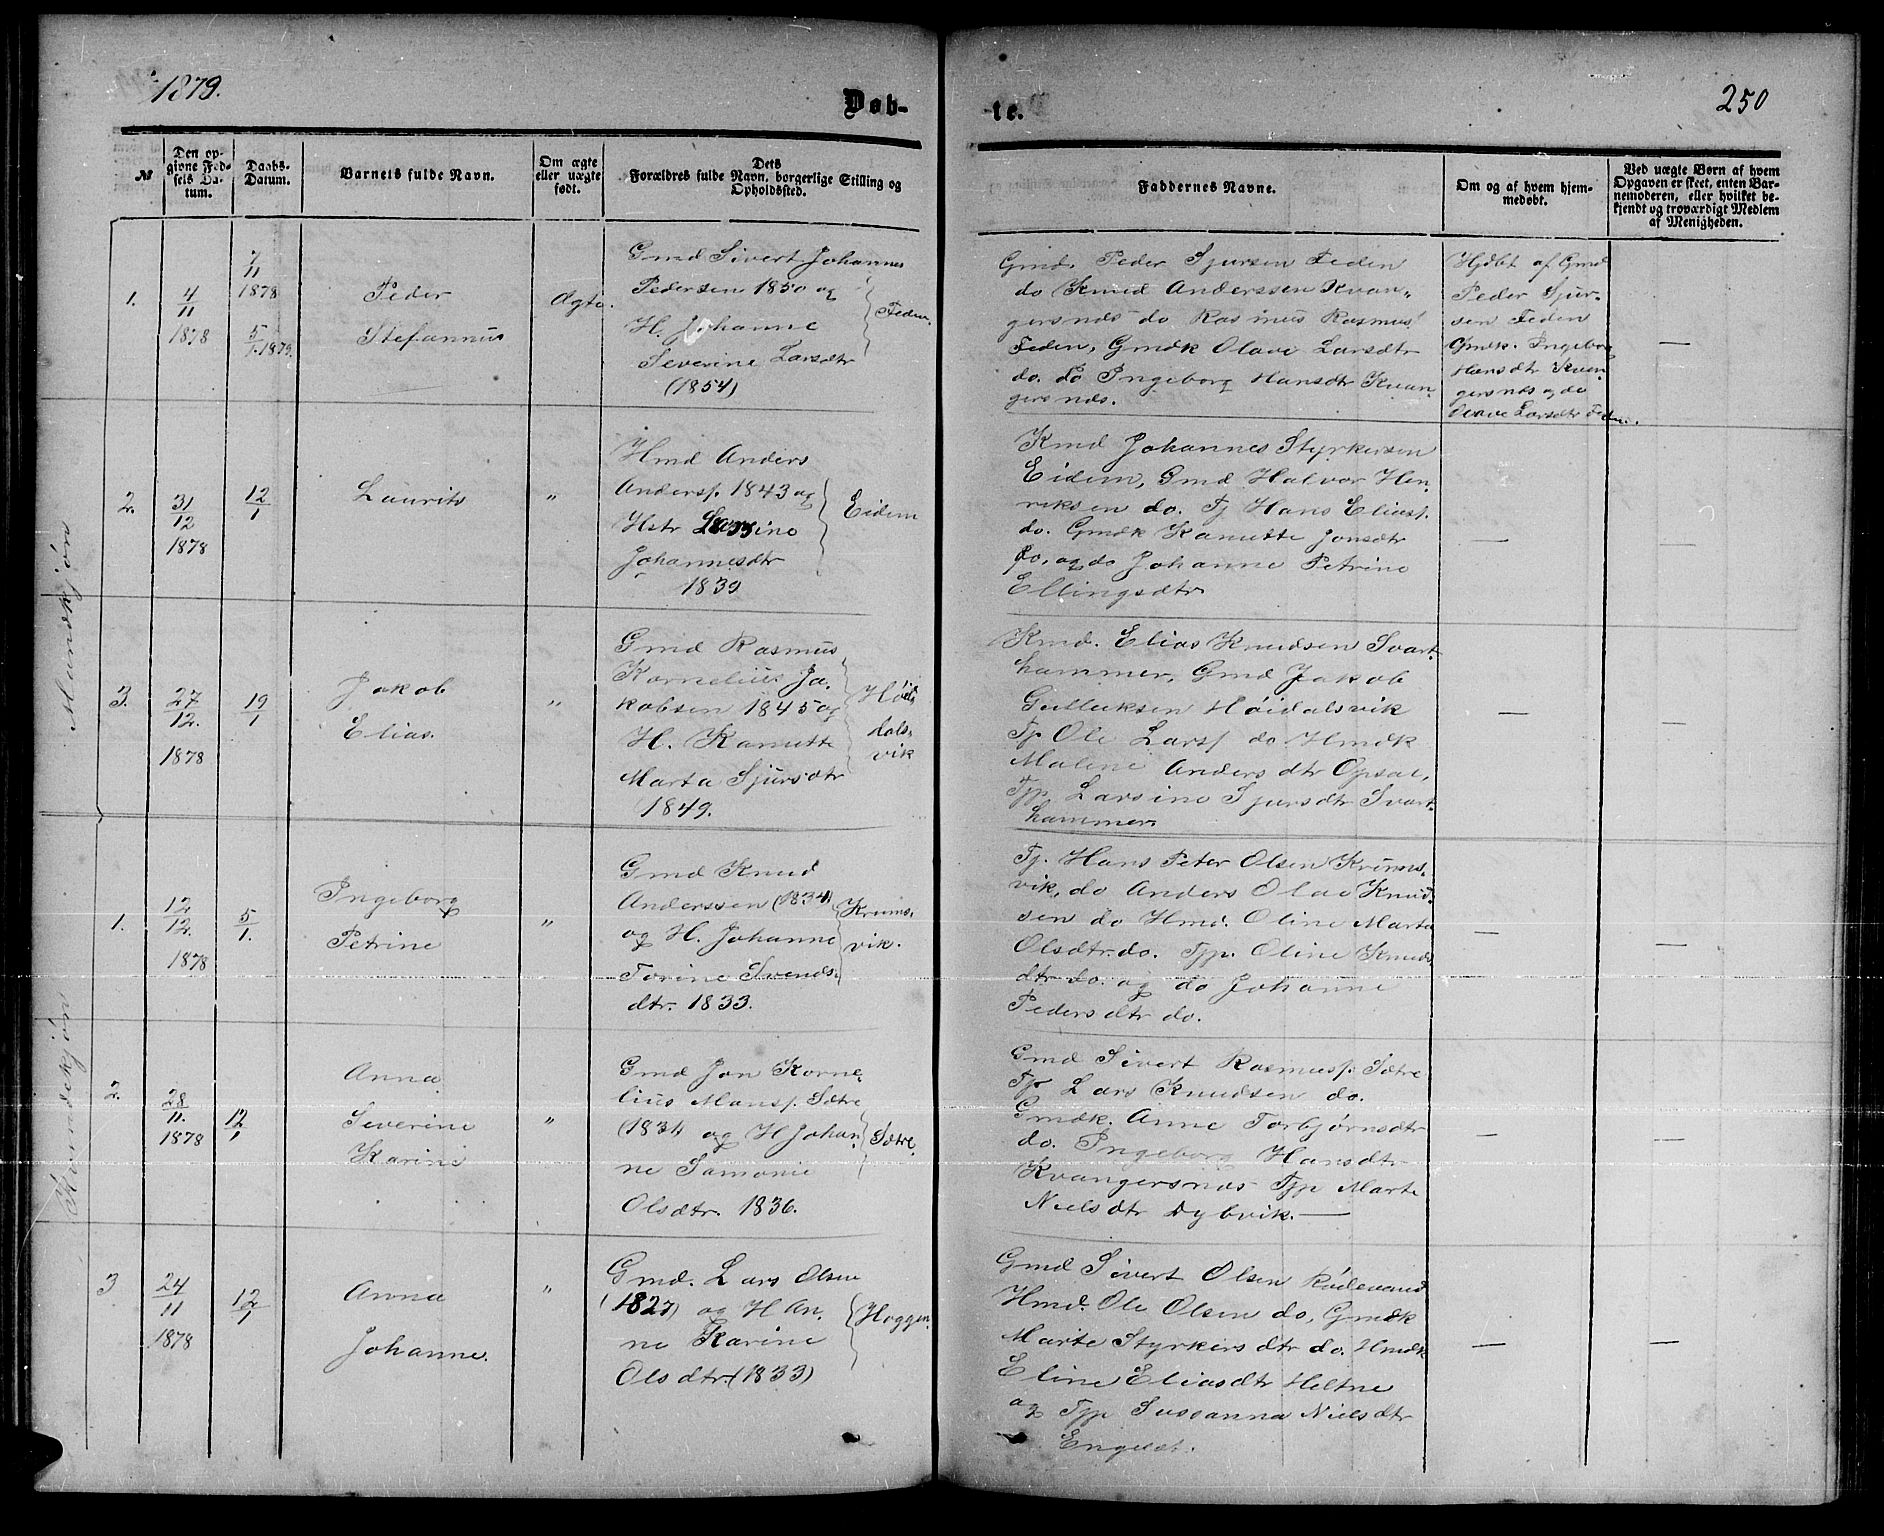 1879.
Døb-
te.
250
№
Den op-
givne Fød-
sels Da-
tum.
Daabs-
Datum.
Barnets fulde Navn.
Om ægte
eller uægte
født.
Dets
Forældres fulde Navn, borgerlige Stilling og
Opholdssted.
Faddernes Navne.
Om og af hvem hjem-
medøbt.
Ved uægte Børn af hvem
Opgaven er skeet, enten Bar-
nemoderen, eller hvilket be-
kjendt og troværdigt Medlem
af Menigheden.
Mandkjøn
1.
4/11
1878
7/11
1878
5/1 1879.
Peder
Stefannus
Ægte.
Gmd Sivert Johannes
Pedersen 1850 og
H. Johanne
Severine Larsdtr
(1854)
Feden.
Gmd. Peder Sjursen Feden
do Knud Anderssen Kvan-
gersnæs do Rasmus Rasmus.
Feden, Gmdk Olave Larsdtr
do. do Ingeborg Hansdtr Kvan-
gersnæs.
Hjdbt af Gmd
Peder Sjur-
sen Feden
Gmdk. Ingeborg
Hansdtr Kvan-
gersnæs og do
Olave Larsdtr Feden.
—
2.
31/12
1878
12/1
Laurits
"
Hmd Anders
Andersf. 1843 og
Hstr Larsine
Johannesdtr
1839
Eidem
Kmd Johannes Styrkersen
Eidem, Gmd Halvor Hen-
riksen do. Tj Hans Eliasf.
do. Gmdk Kanutte Jonsdtr
do, og do Johanne Petrine
Ellingsdtr
—
—
3.
27/12.
1878
19/1
Jakob
Elias.
"
Gmd Rasmus
Kornelius Ja-
kobsen 1845 og
H. Kanutte
Marta Sjursdtr
1849.
Høi-
dals-
vik
Kmd. Elias Knudsen Svart-
hammer, Gmd Jakob
Gulleksen Høidalsvik
Tj. Ole Larsf do Hmdk
Malene Andersdtr Opsal,
Tjp. Larsine Sjursdtr Svart-
hammer.
—
—
Kvindekjøn
1.
12/12.
1878
5/1.
Ingeborg
Petrine
"
Gmd Knud
Anderssen (1834)
og H. Johanne
Torine Svends-
dtr. 1833.
Krums-
vik.
Tj. Hans Peter Olsen Krums-
vik, do Anders Olav Knud-
sen do Hmd. Oline Marta
Olsdtr do. Tjp. Oline Knuds
dtr do. og do Johanne
Pedersdtr do.
—
—
2.
28/11.
1878
12/1
Anna
Severine
Karine
"
Gmd Jon Korne-
lius Mansf. Sætre
(1834 og H Johan-
ne Samonie
Olsdtr. 1836.
Sætre
Gmd Sivert Rasmusf. Sætre
Tj. Lars Knudsen do.
Gmdk. Anne Torbjørnsdtr
do. Ingeborg Hansdtr
Kvangersnæs Tjp Marte
Nielsdtr Dybvik. —
—
—
3
24/11
1878
12/1
Anna
Johanne.
"
Gmd. Lars Olsen
(1827) og H An-
ne Karine
Olsdtr. (1833)
Hoggen
Gmd Sivert Olsen Rødevand
Hmd. Ole Olsen do, Gmdk
Marte Styrkersdtr do. Hmdk
Eline Eliasdtr Heltne
og Tjp Sussanna Nielsdtr
Engeset.
—
—